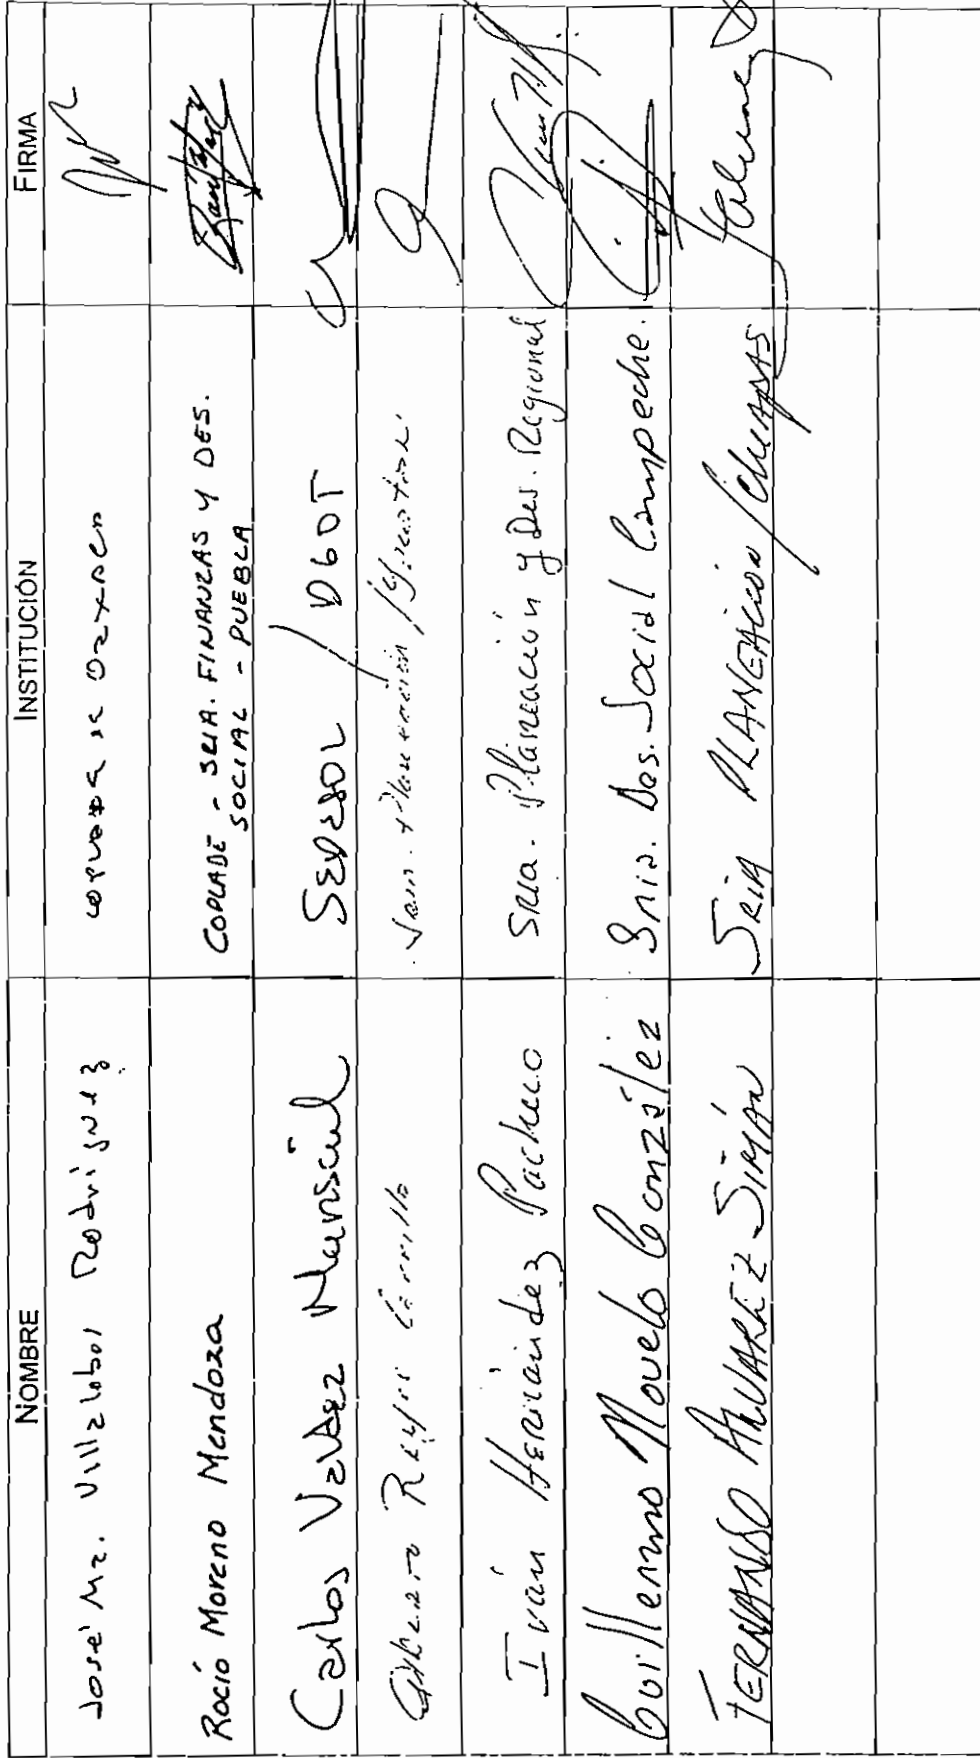 NOMBRE INSTITUCIÓN FIRMA
José Ma. Villalobos Rodríguez COPLADE de Oaxaca
Rocío Moreno Mendoza COPLADE - SRIA. FINANZAS Y DES.
SOCIAL - PUEBLA
Carlos Valdez Mariscal SEDESOL / DGOT
Reyes Carrillo
Iván Hernández Pacheco Sria. Planeación y Des. Regional
Guillermo Novelo González Sria. Des. Social Campeche.
FERNANDO ALVAREZ SIMÁN SRIA PLANEACIÓN / CHIAPAS